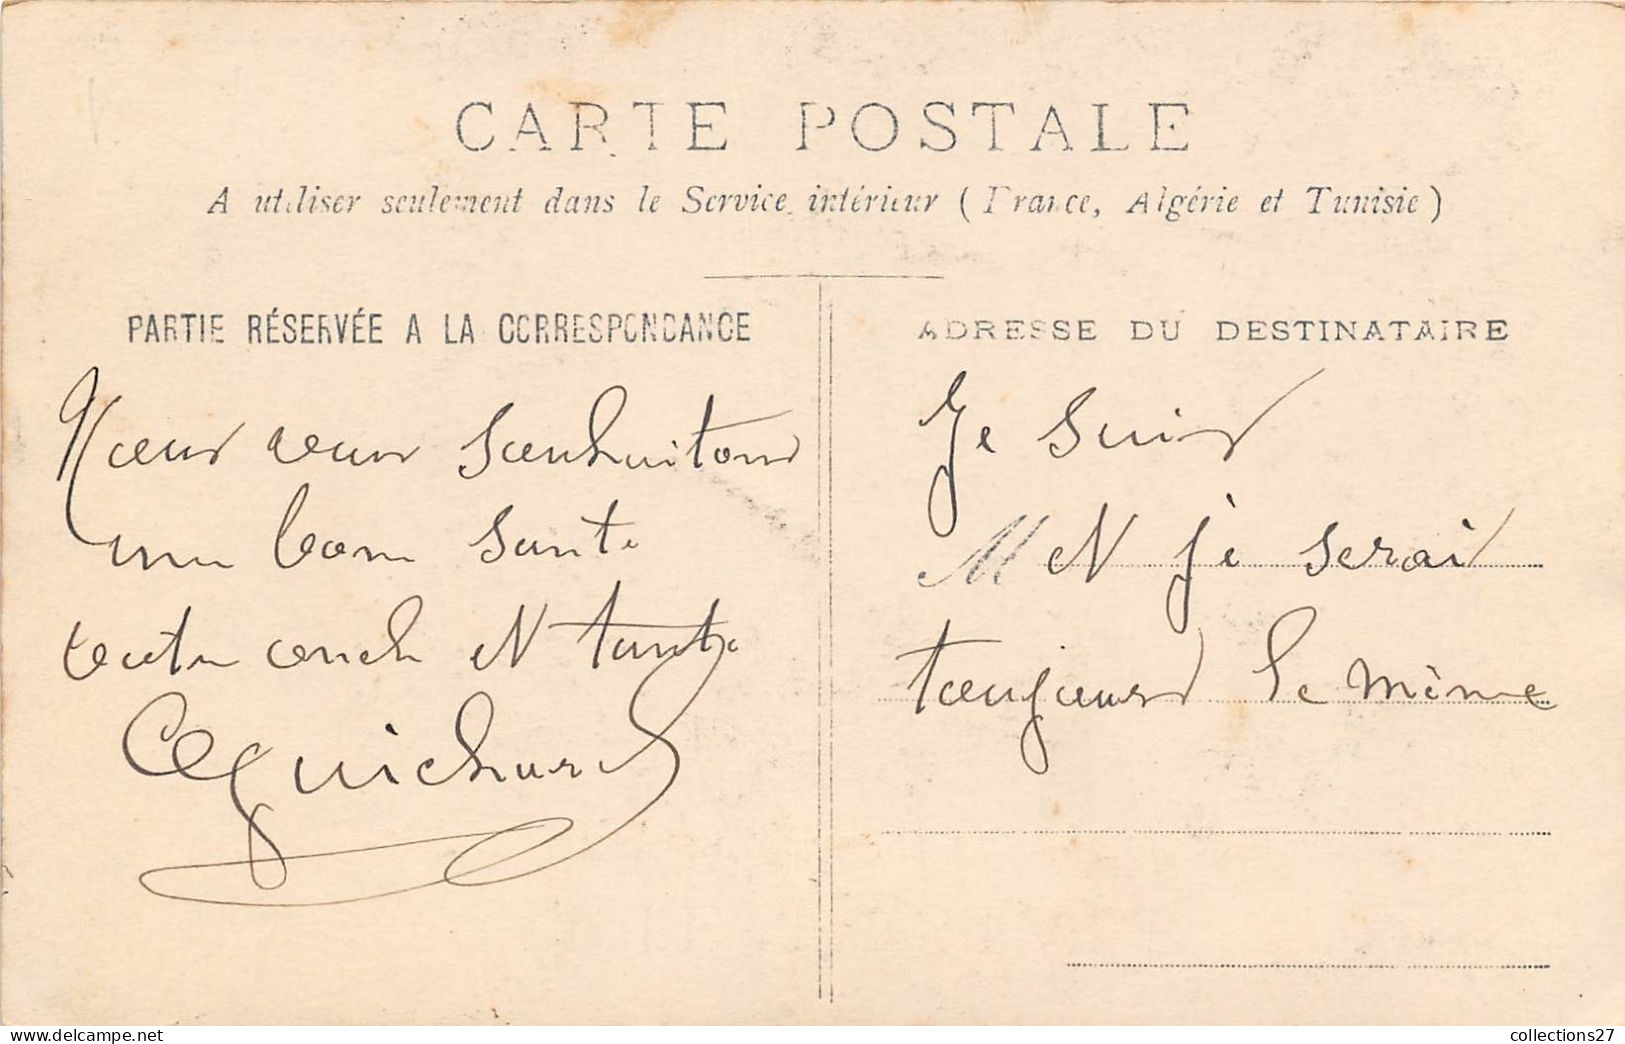 CARTE POSTALE
A utiliser seulement dans le Service intérieur (France, Algérie et Tunisie)
PARTIE RÉSERVÉE A LA CORRESPONDANCE
Nous vous souhaitons
une bonne sante
votre oncle et tante
Guichard
ADRESSE DU DESTINATAIRE
Je suis
M et je serai
toujours le même
collections27